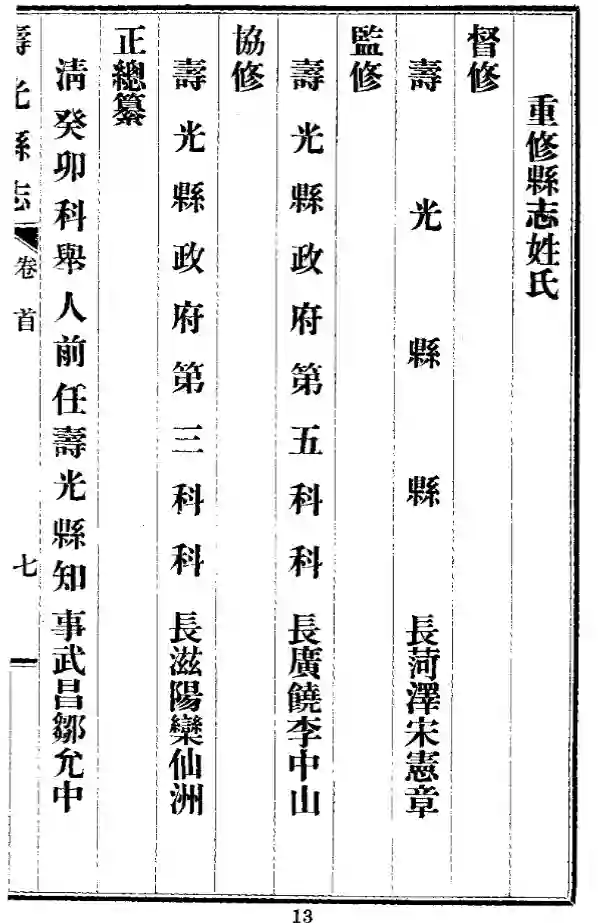 重修縣志姓氏
督修
壽光縣縣長菏澤宋憲章
監修
壽光縣政府第五科科長廣饒李中山
協修
壽光縣政府第三科科長滋陽欒仙洲
正總纂
清癸卯科舉人前任壽光縣知事武昌鄒允中
壽光縣志 卷首 七
13